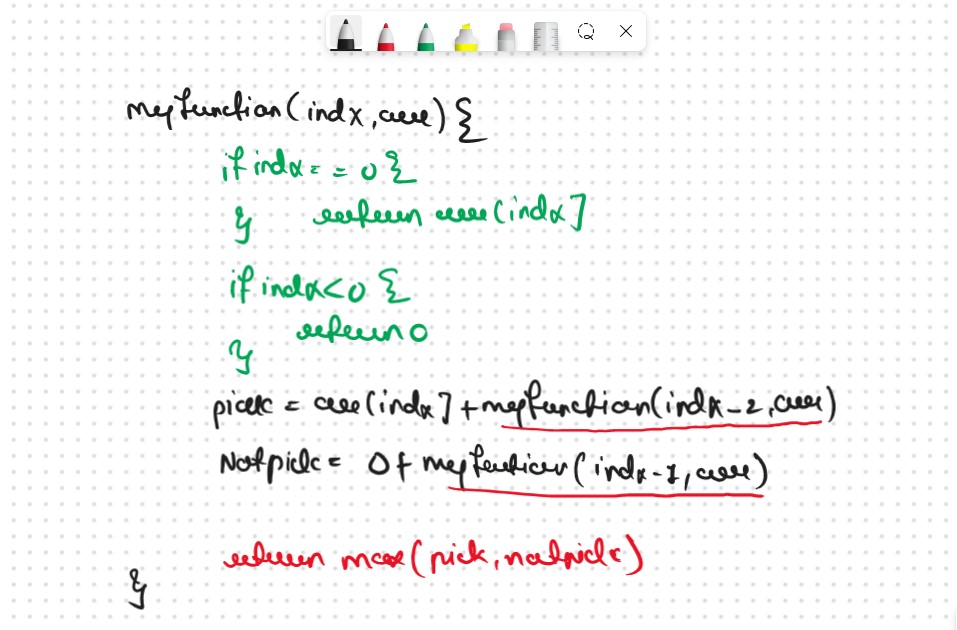 myfunction(indx,arr){
if indx==0{
} return arr[indx]
if indx<0{
return 0
}
pick = arr[indx]+myfunction(indx-2,arr)
Notpick = 0+myfunction(indx-1,arr)
return max(pick,notpick)
}